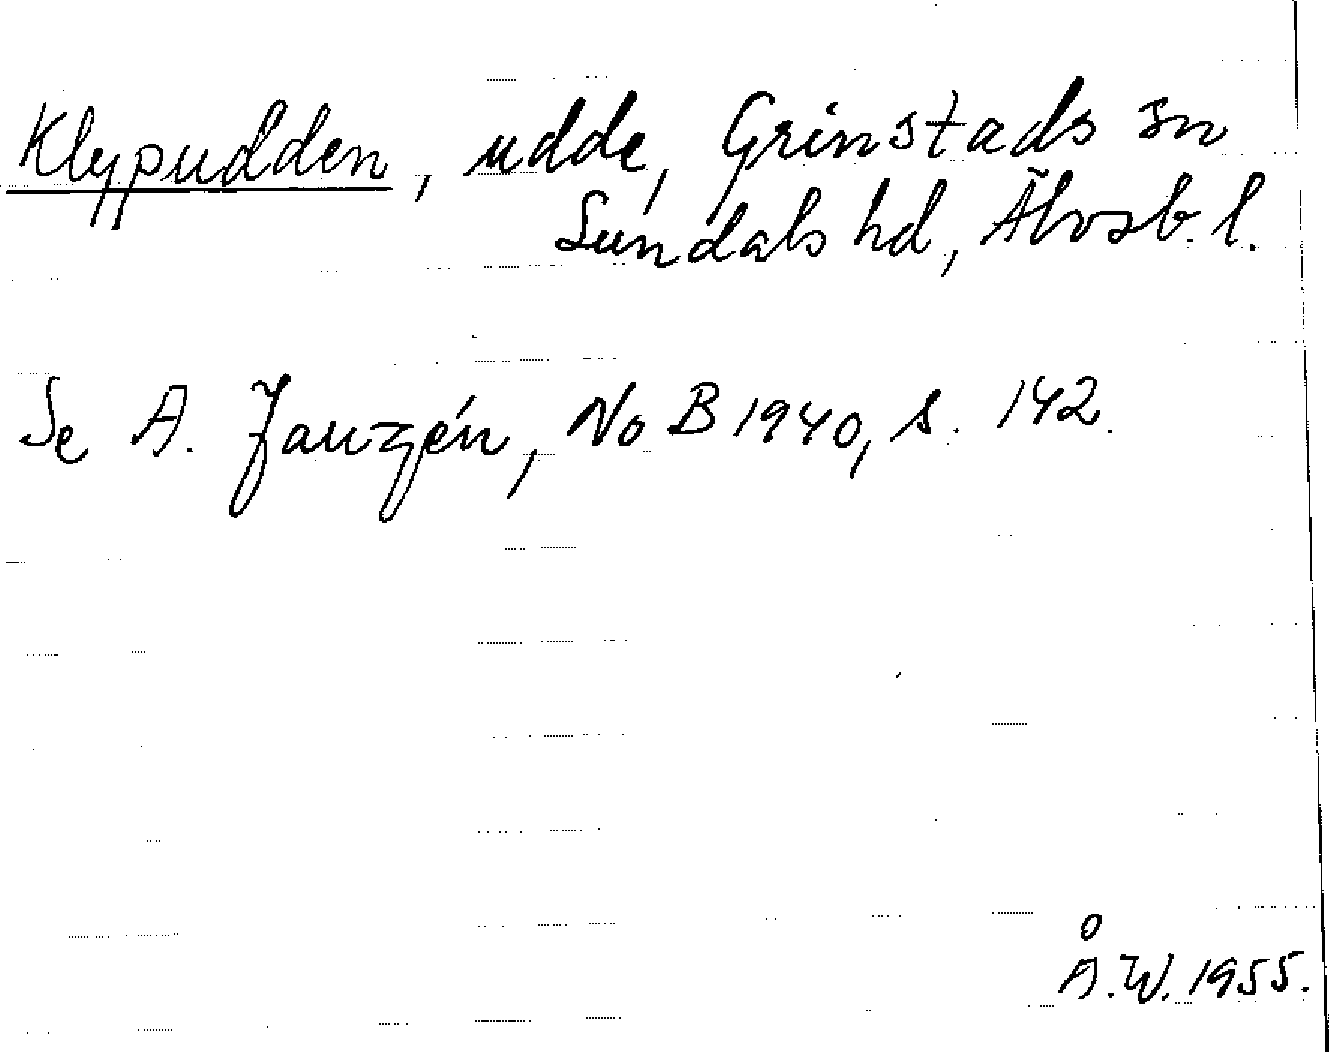 Klypudden, udde, Grinstads sn
Sundals hd, Älvsb. l.
Se A. Janzén, NoB 1940, s. 142.
Å.W. 1955.